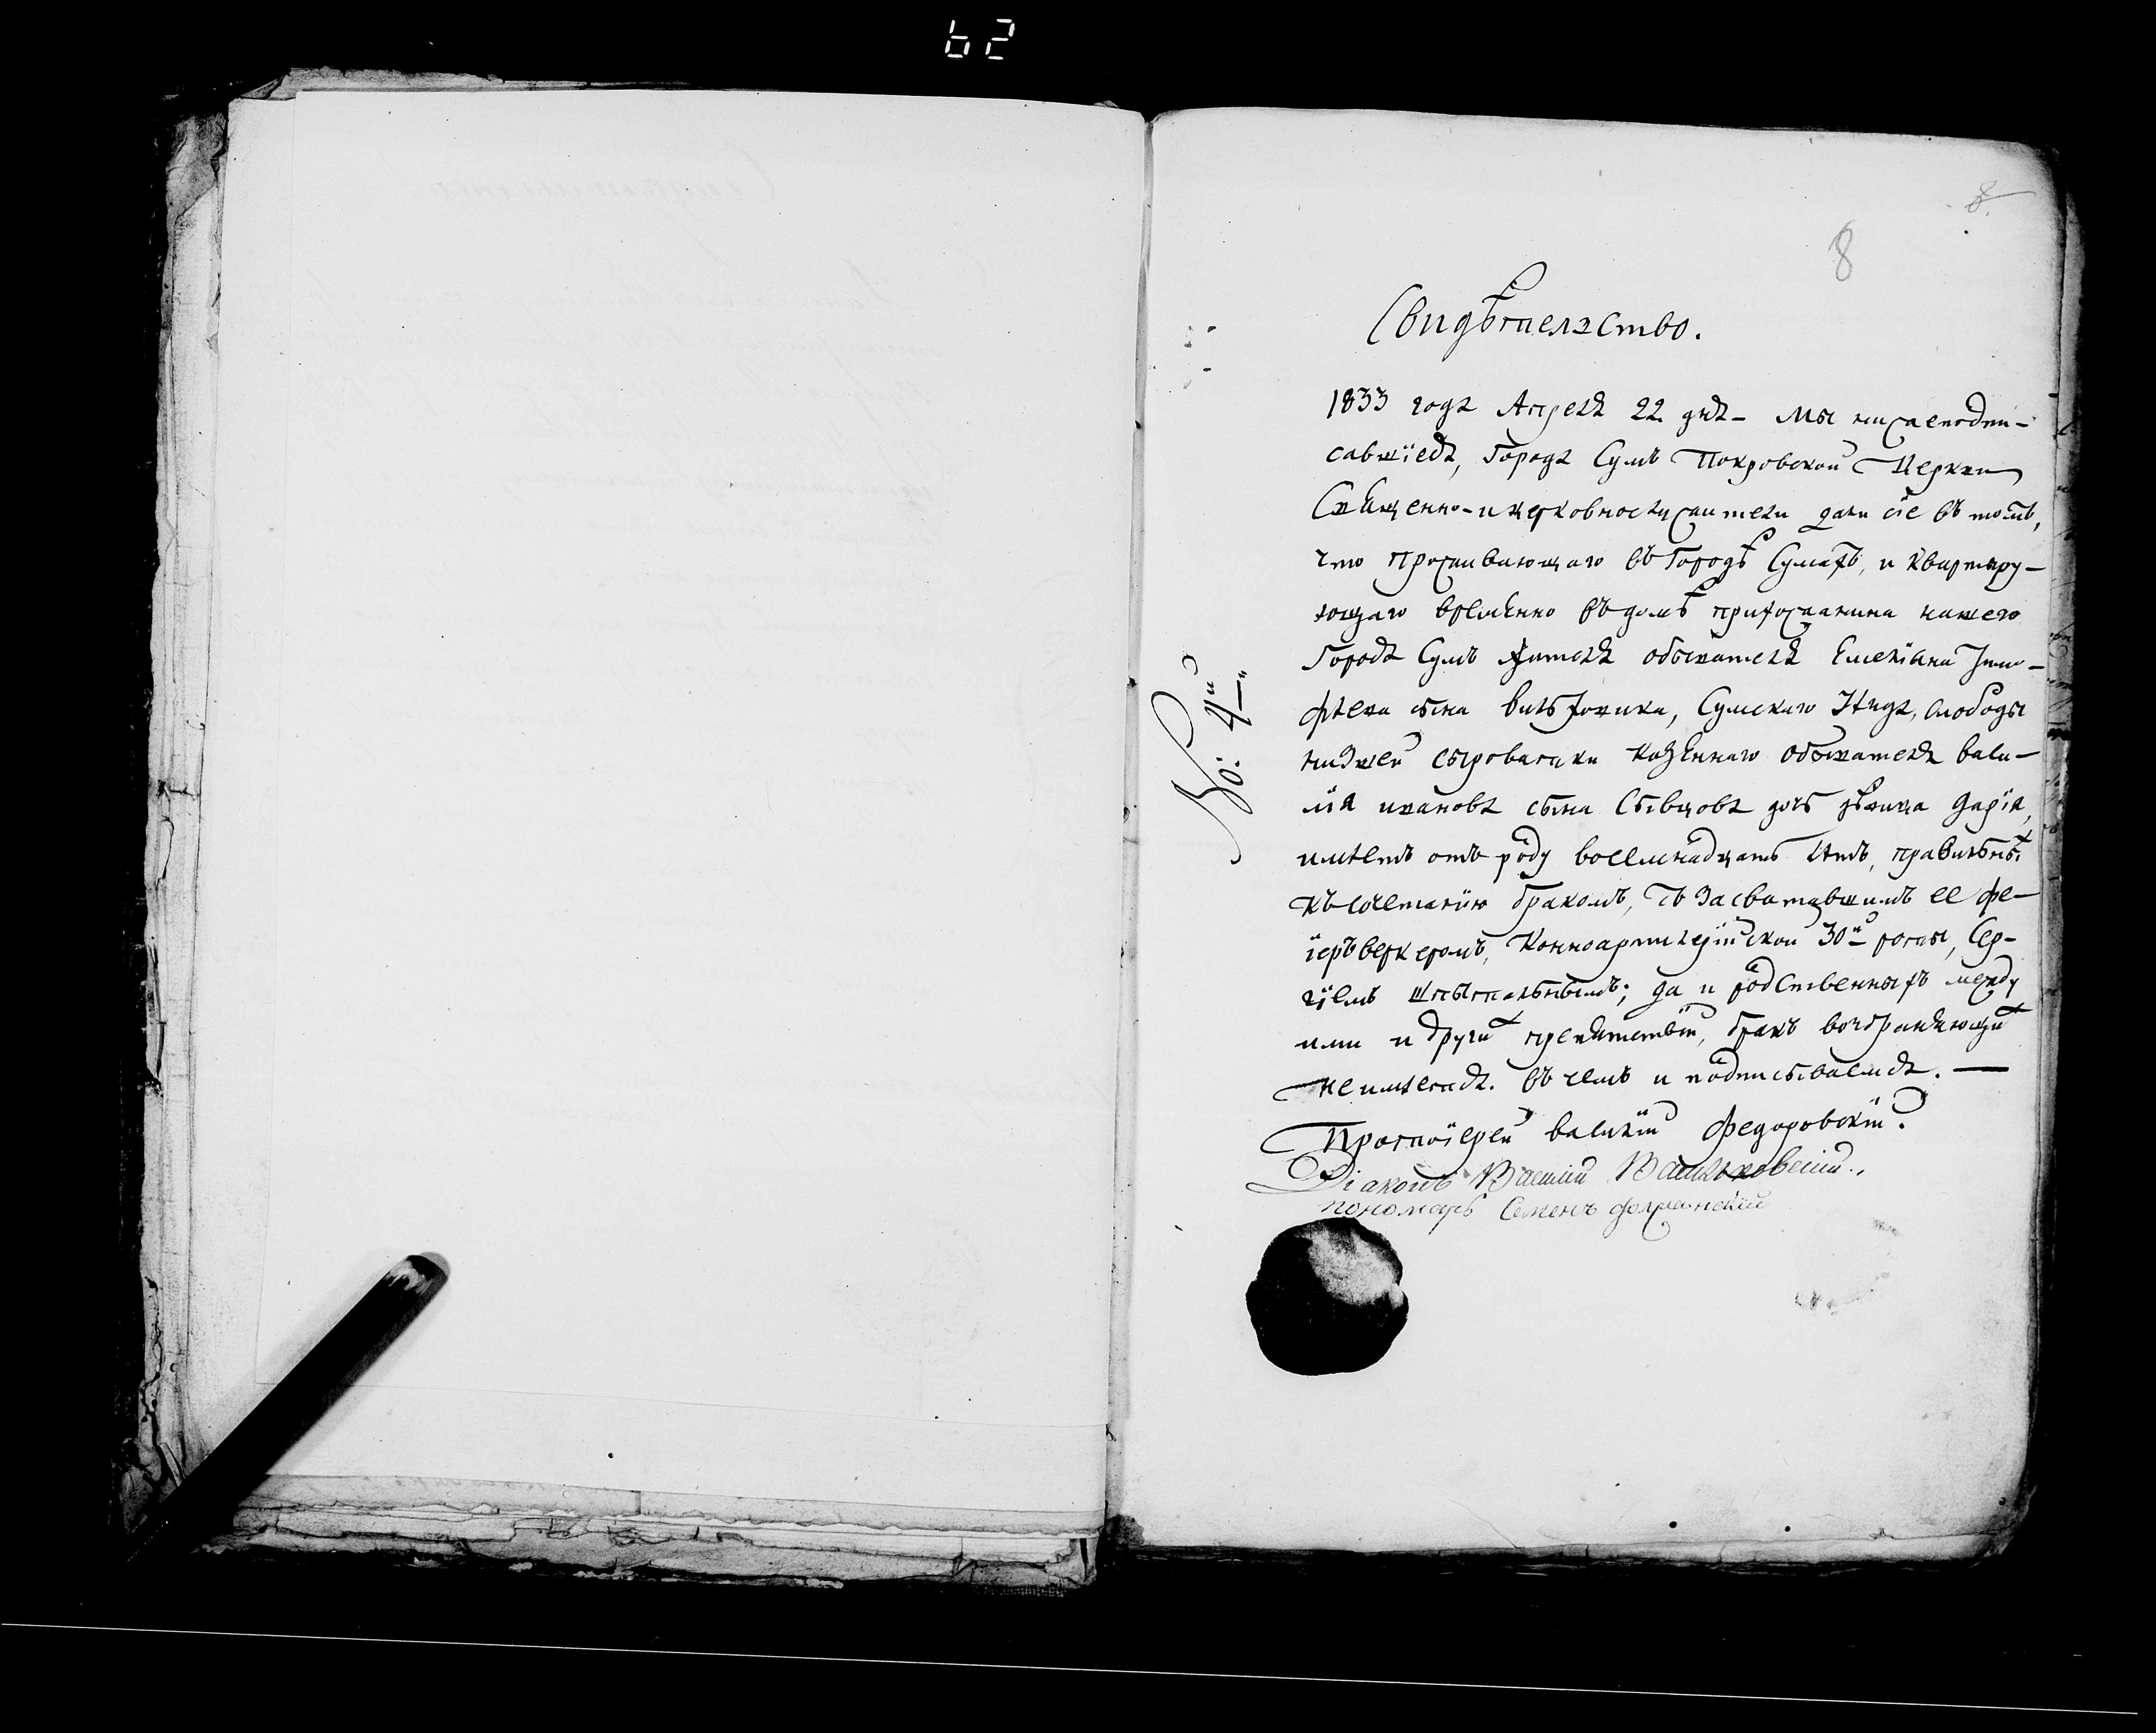 62
8
8
Свидѣтелство.
No: 4й
1833 года Апреля 22 дня - Мы нижеподпи-
савшіеся, Города Сумъ Покровской Церкви
Священно-и церковнослужители дали сіе въ томъ,
что проживающаго въ Городѣ Сумахъ, и квартиру-
ющаго временно въ домѣ прихожанина нашего
Города Сумъ жителя обывателя Емеліана Тимо-
фѣева сына Сумскаго уѣзда, слободы
нижней сыроватки казеннаго обывателя васи-
лія иванова сына Сѣвцова дочь дѣвица дарія,
имѣетъ отъ роду восемнадцать лѣтъ, правильных
къ сочетанію бракомъ, съ засватавшимъ ее фе-
іерверкеромъ, Конноартилерійской 30й роты, Сер-
гіемъ да и родственныхъ между
ими и других препятствій, бракъ возбраняющих
не имѣется. въ чемъ и подписываемся. —
Протоіерей василій Федоровскій.
Діаконъ Василій
пономарь Семенъ